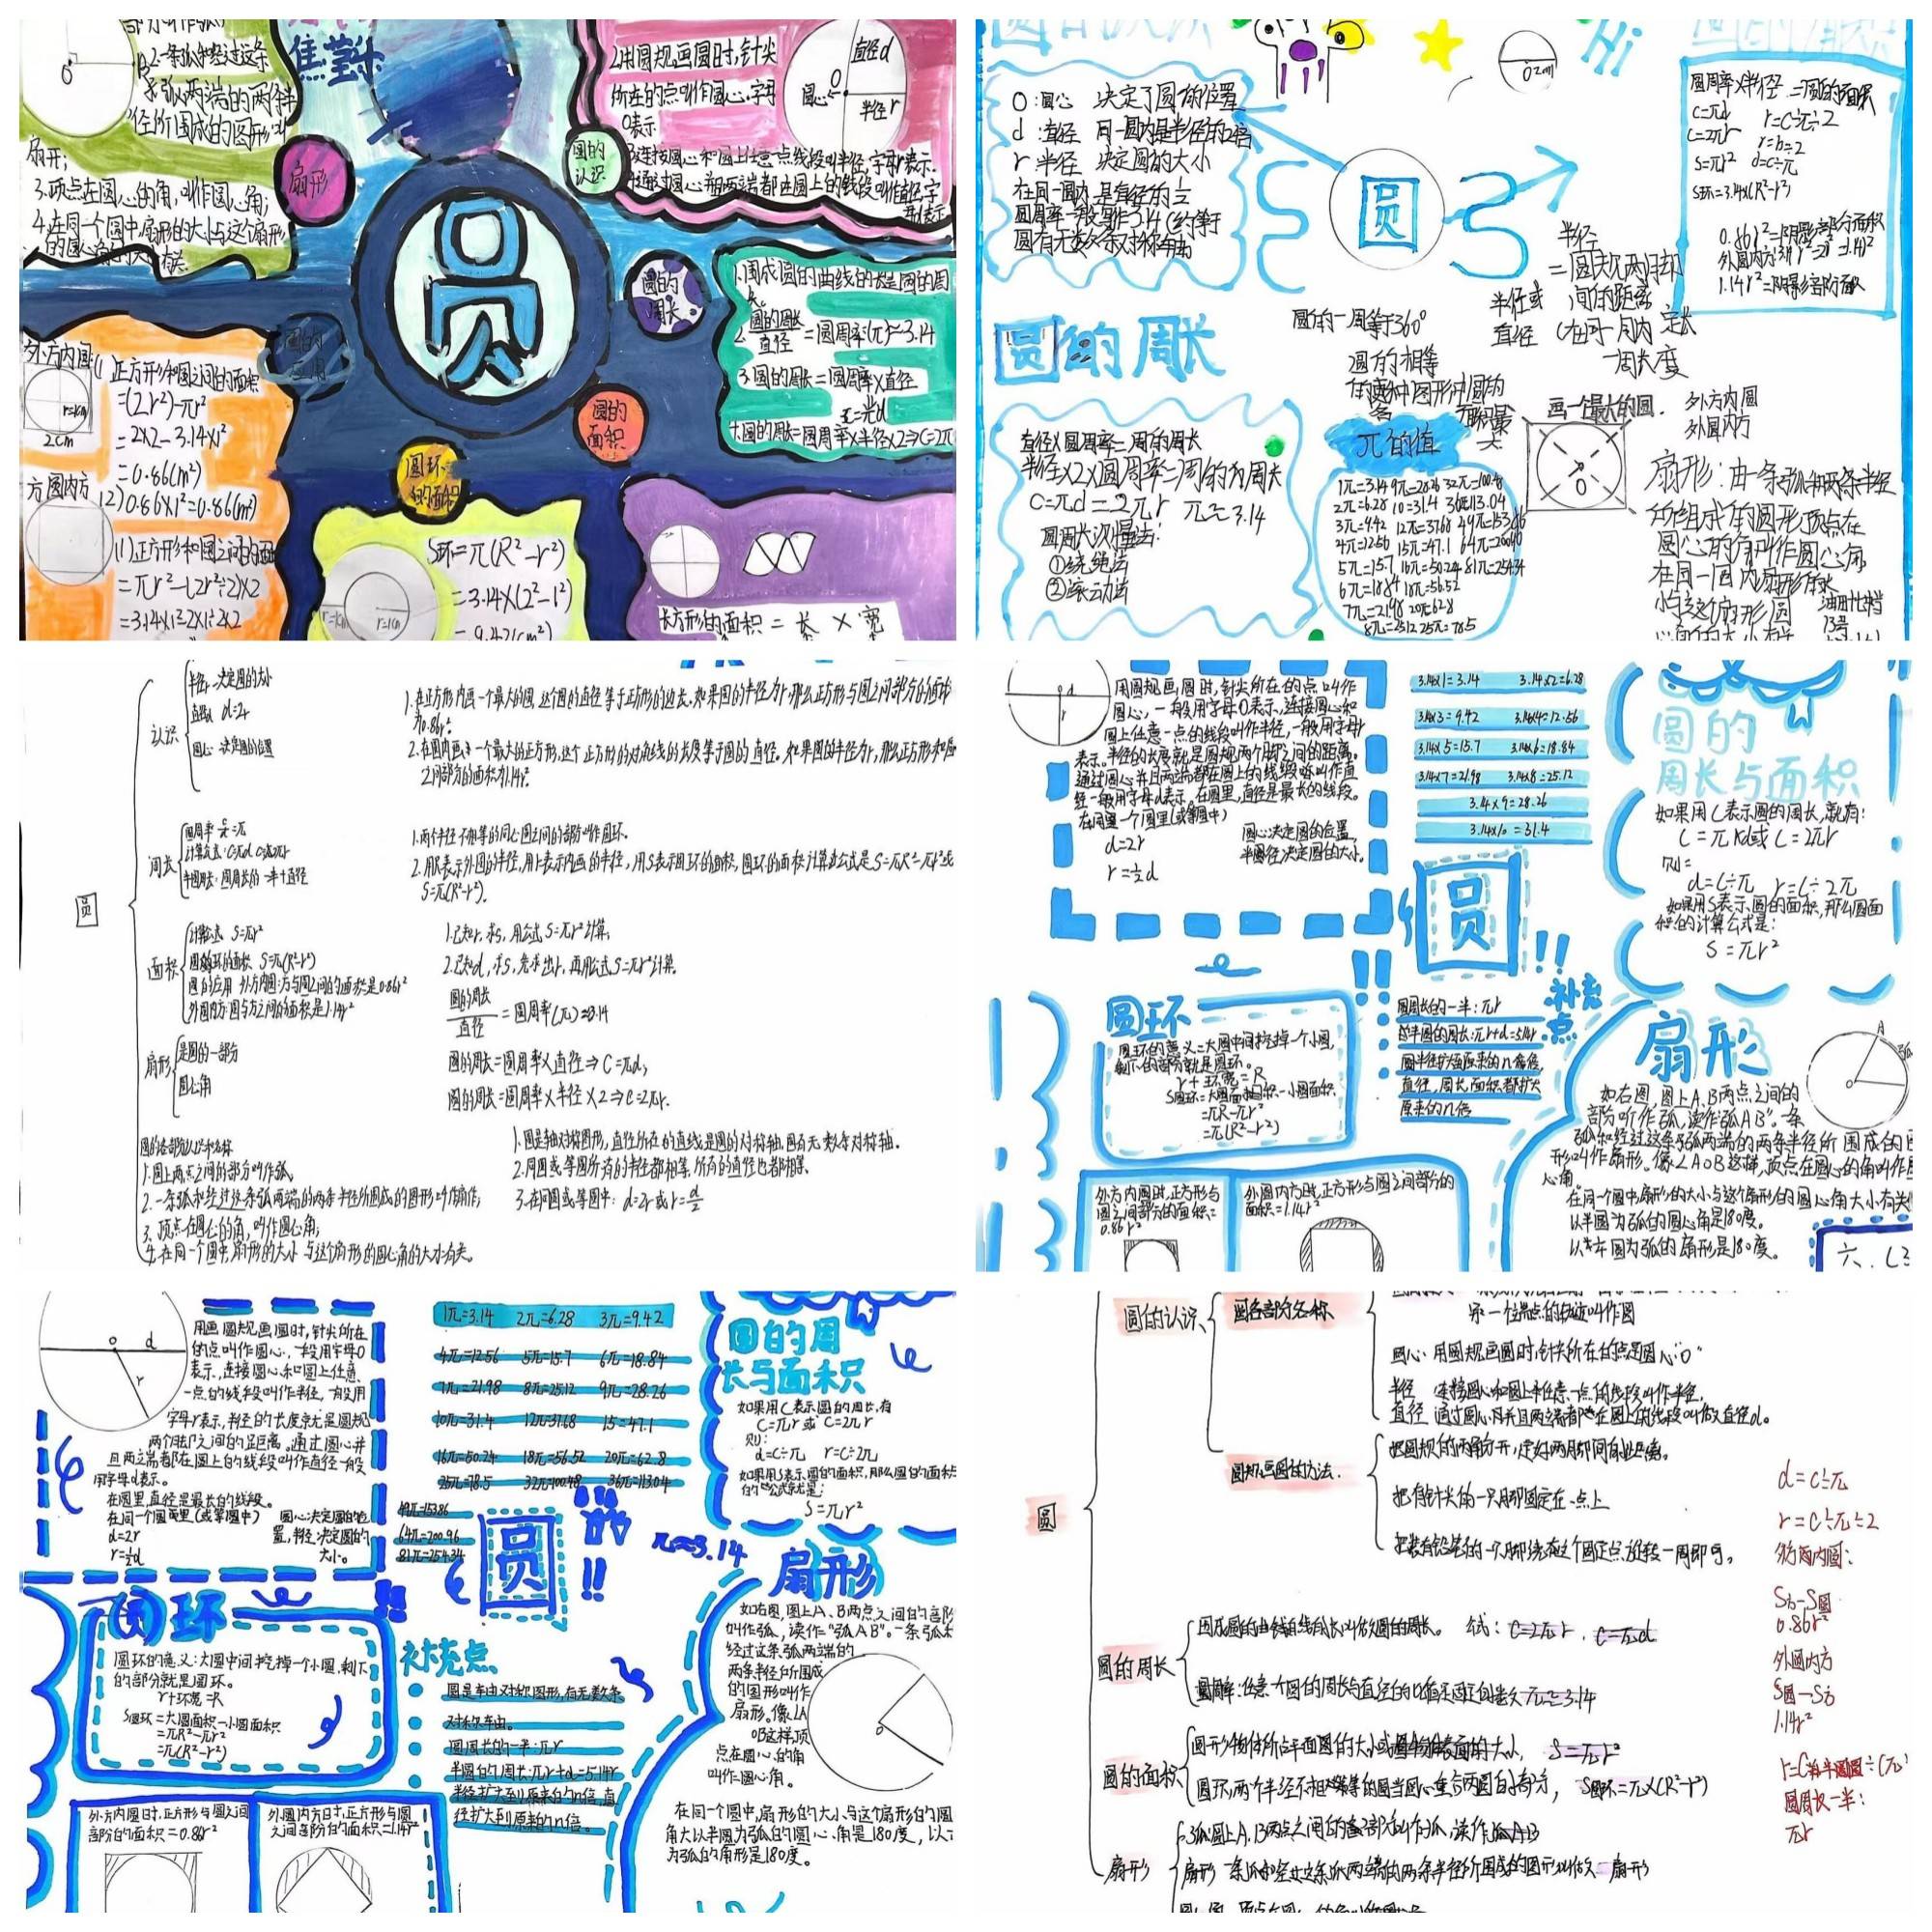 2.一条弧和经过这条
弧两端的两条半
径所围成的图形叫
扇形;
3.顶点在圆心的角,叫作圆心角;
4.在同一个圆中,扇形的大小与这个扇形
的圆心角的大小有关。
扇形
2.用圆规画圆时,针尖
所在的点叫作圆心,字母
O表示
圆心
O
直径d
半径r
圆的
认识
圆
圆的
周长
1.围成圆的曲线的长是圆的周
长。
2.圆的周长/直径=圆周率(π)≈3.14
3.圆的周长=圆周率×直径
圆的周长=圆周率×半径×2⇒C=2π
圆的
面积
圆环
的面积
外方内圆
r=1cm
2cm
(1)正方形和圆之间的面积
=(2r²)-πr²
=2×2-3.14×1²
=0.86(m²)
(2)0.86×1²=0.86(m²)
(1)正方形和圆之间的面
=πr²-(2r²÷2)×2
S环=π(R²-r²)
=3.14×(2²-1²)
r=1cm
长方形的面积 = 长 × 宽
Hi
O:圆心 决定了圆的位置
d:直径 同一圆内是半径的2倍
r 半径 决定圆的大小
在同一圆内 是直径的½
圆有无数条对称轴
圆
圆周率×半径²=圆的面积
C=πd
C=2πr
S=πr²
d=C÷π
r=C÷π÷2
S环=3.14×(R²-r²)
1.14r²=阴影部分面积
圆的一周等于360°
圆的周长
直径×圆周率=周的周长
C=πd=2πr π≈3.14
①绕绳法
②滚动法
π的值
1π=3.14 9π=28.26 32π=100.48
2π=6.28 10=31.4 36π=113.04
3π=9.42 12π=37.68 49π=153.86
4π=12.56 15π=47.1 64π=200.96
5π=15.7 16π=50.24 81π=254.34
6π=18.84 18π=56.52
7π=21.98 20π=62.8
8π=25.12 25π=78.5
画一个最大的圆.
外方内圆
外圆内方
扇形:由一条弧和两条半径
圆
认识
半径r 决定圆的大小
直径d d=2r
圆心 决定圆的位置
1.在正方形内画一个最大的圆,这个圆的直径等于正方形的边长.如果圆的半径为r,那么正方形与圆之间部分的面积
为0.86r².
2.在圆内画一个最大的正方形,这个正方形的对角线的长度等于圆的直径.如果圆的半径为r,那么正方形和圆
之间部分的面积为1.14r².
周长
计算公式:C=πd C=2πr
半圆周长:圆周长的一半+直径
1.两个半径不相等的同心圆之间的部分叫作圆环.
2.用R表示外圆的半径,用r表示内圆的半径,用S表示圆环的面积,圆环的面积计算公式是S=πR²-πr²或
S=π(R²-r²).
面积
计算公式 S=πr²
圆环的面积 S=π(R²-r²)
圆的应用 外方内圆:方与圆之间的面积是0.86r²
外圆内方:圆与方之间的面积是1.14r²
1.已知r,求S,用公式S=πr²计算;
2.已知d,求S,先求出r,再用公式S=πr²计算.
圆的周长/直径=圆周率(π)≈3.14
圆的周长=圆周率×直径⇒C=πd;
圆的周长=圆周率×半径×2⇒C=2πr.
扇形
是圆的一部分
圆心角
1.圆上两点之间的部分叫作弧;
2.一条弧和经过这条弧两端的两条半径所围成的图形叫作扇形;
3.顶点在圆心的角,叫作圆心角;
4.在同一个圆中,扇形的大小与这个扇形的圆心角的大小有关.
1.圆是轴对称图形,直径所在的直线是圆的对称轴.圆有无数条对称轴.
2.同圆或等圆所有的半径都相等,所有的直径也都相等.
3.在同圆或等圆中:d=2r或r=d/2
用圆规画圆时,针尖所在的点叫作
圆心,一般用字母O表示,连接圆心和
圆上任意一点的线段叫作半径,一般用字母r
表示.半径的长度就是圆规两个脚之间的距离.
通过圆心并且两端都在圆上的线段叫作直
径一般用字母d表示.在圆里,直径是最长的线段.
在同一个圆里(或等圆中)
d=2r
r=½d
圆心决定圆的位置,
半径决定圆的大小.
3.14×1=3.14 3.14×2=6.28
3.14×3=9.42 3.14×4=12.56
3.14×5=15.7 3.14×6=18.84
3.14×7=21.98 3.14×8=25.12
3.14×9=28.26
3.14×10=31.4
圆
圆的
周长与面积
如果用C表示圆的周长,就有:
C=πd或C=2πr
则:
d=C÷π r=C÷2π
如果用S表示圆的面积,那么圆面
积的计算公式是:
S=πr²
圆环
圆环的意义=大圆中间挖掉一个小圆,
剩下的部分就是圆环.
r+环宽=R
S圆环=大圆面积-小圆面积
=πR-πr²
=π(R²-r²)
补充
点
圆周长的一半:πr
半圆的周长:πr+d=5.14r
圆半径扩大到原来的n倍,
直径,周长,面积都扩大
原来的n倍
扇形
A
如右图,圆上A、B两点之间的
部分叫作弧,读作"弧AB".一条
弧和经过这条弧两端的两条半径所围成的图
形叫作扇形.像∠AOB这样,顶点在圆心的角叫作圆
心角.
在同一个圆中,扇形的大小与这个扇形的圆心角大小有关
以半圆为弧的圆心角是180度。
外方内圆时,正方形与
圆之间部分的面积=
0.86r²
外圆内方时,正方形与圆之间部分的
面积=1.14r²
用圆规画圆时,针尖所在
的点叫作圆心,一般用字母O
表示,连接圆心和圆上任意
一点的线段叫作半径,一般用
字母r表示,半径的长度就是圆规
两个脚之间的距离.通过圆心并
且两端都在圆上的线段叫作直径一般
用字母d表示.
在圆里,直径是最长的线段.
在同一个圆里(或等圆中)
d=2r
r=½d
圆心决定圆的位
置,半径决定圆的
大小.
1π=3.14 2π=6.28 3π=9.42
4π=12.56 5π=15.7 6π=18.84
7π=21.98 8π=25.12 9π=28.26
10π=31.4 12π=37.68 15=47.1
16π=50.24 18π=56.52 20π=62.8
25π=78.5 32π=100.48 36π=113.04
49π=153.86
64π=200.96
81π=254.34
圆
π≈3.14
圆的周
长与面积
如果用C表示圆的周长,有
C=πr或 C=2πr
则:
d=C÷π r=C÷2π
如果用S表示圆的面积,那么圆的面积
的公式就是:
S=πr²
圆环
圆环的意义:大圆中间挖掉一个小圆,剩下
的部分就是圆环.
r+环宽=R
S圆环=大圆面积-小圆面积
=πR²-πr²
=π(R²-r²)
补充点
圆是轴对称图形,有无数条
对称轴.
圆周长的一半:πr
半圆的周长:πr+d=5.14r
半径扩大到原来的n倍,直
径扩大到原来的n倍.
扇形
如右图,圆上A、B两点之间的部分
叫作弧,读作"弧AB".一条弧和
经过这条弧两端的
两条半径所围成
的图形叫作
扇形.像∠A
OB这样,顶
点在圆心的角
叫作圆心角.
在同一个圆中,扇形的大小与这个扇形的圆
角大以半圆为弧的圆心角是180度,以
为弧的角形是180度。
外方内圆时,正方形与圆之间
部分的面积=0.86r²
外圆内方时,正方形与圆
之间部分的面积=1.14r²
圆
圆的认识
圆各部分名称
圆心:用圆规画圆时,针尖所在的点是圆心"O"
半径 连接圆心和圆上任意一点的线段叫作半径.
直径 通过圆心并且两端都在圆上的线段叫做直径d.
圆规画圆的方法.
把圆规的两脚分开,定好两脚间的距离.
把有针尖的一只脚固定在一点上
把装有铅笔的一只脚绕着这个固定点旋转一周即可.
圆的周长
围成圆的曲线的长叫做圆的周长. 公式: C=2πr. C=πd
圆的面积
S=πr²
S圆环=π×(R²-r²)
扇形
弧:圆上A.B两点之间的部分叫作弧,读作弧AB
扇形 一条弧和经过这条弧两端的两条半径所围成的图形叫做扇形
d=C÷π
r=C÷π÷2
外方内圆:
S方-S圆
0.86r²
外圆内方
S圆-S方
1.14r²
圆周长一半:
πr